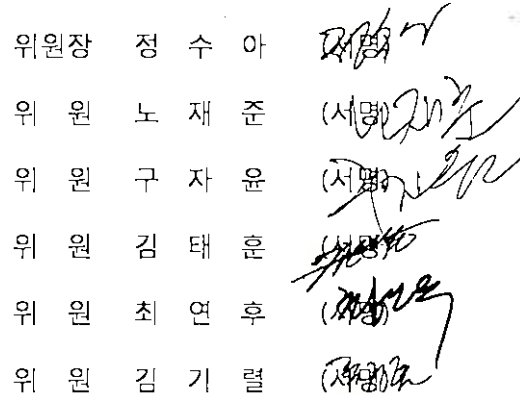 위원장 정 수 아 (서명)
위 원 노 재 준 (서명)
위 원 구 자 윤 (서명)
위 원 김 태 훈 (서명)
위 원 최 연 후 (서명)
위 원 김 기 렬 (서명)